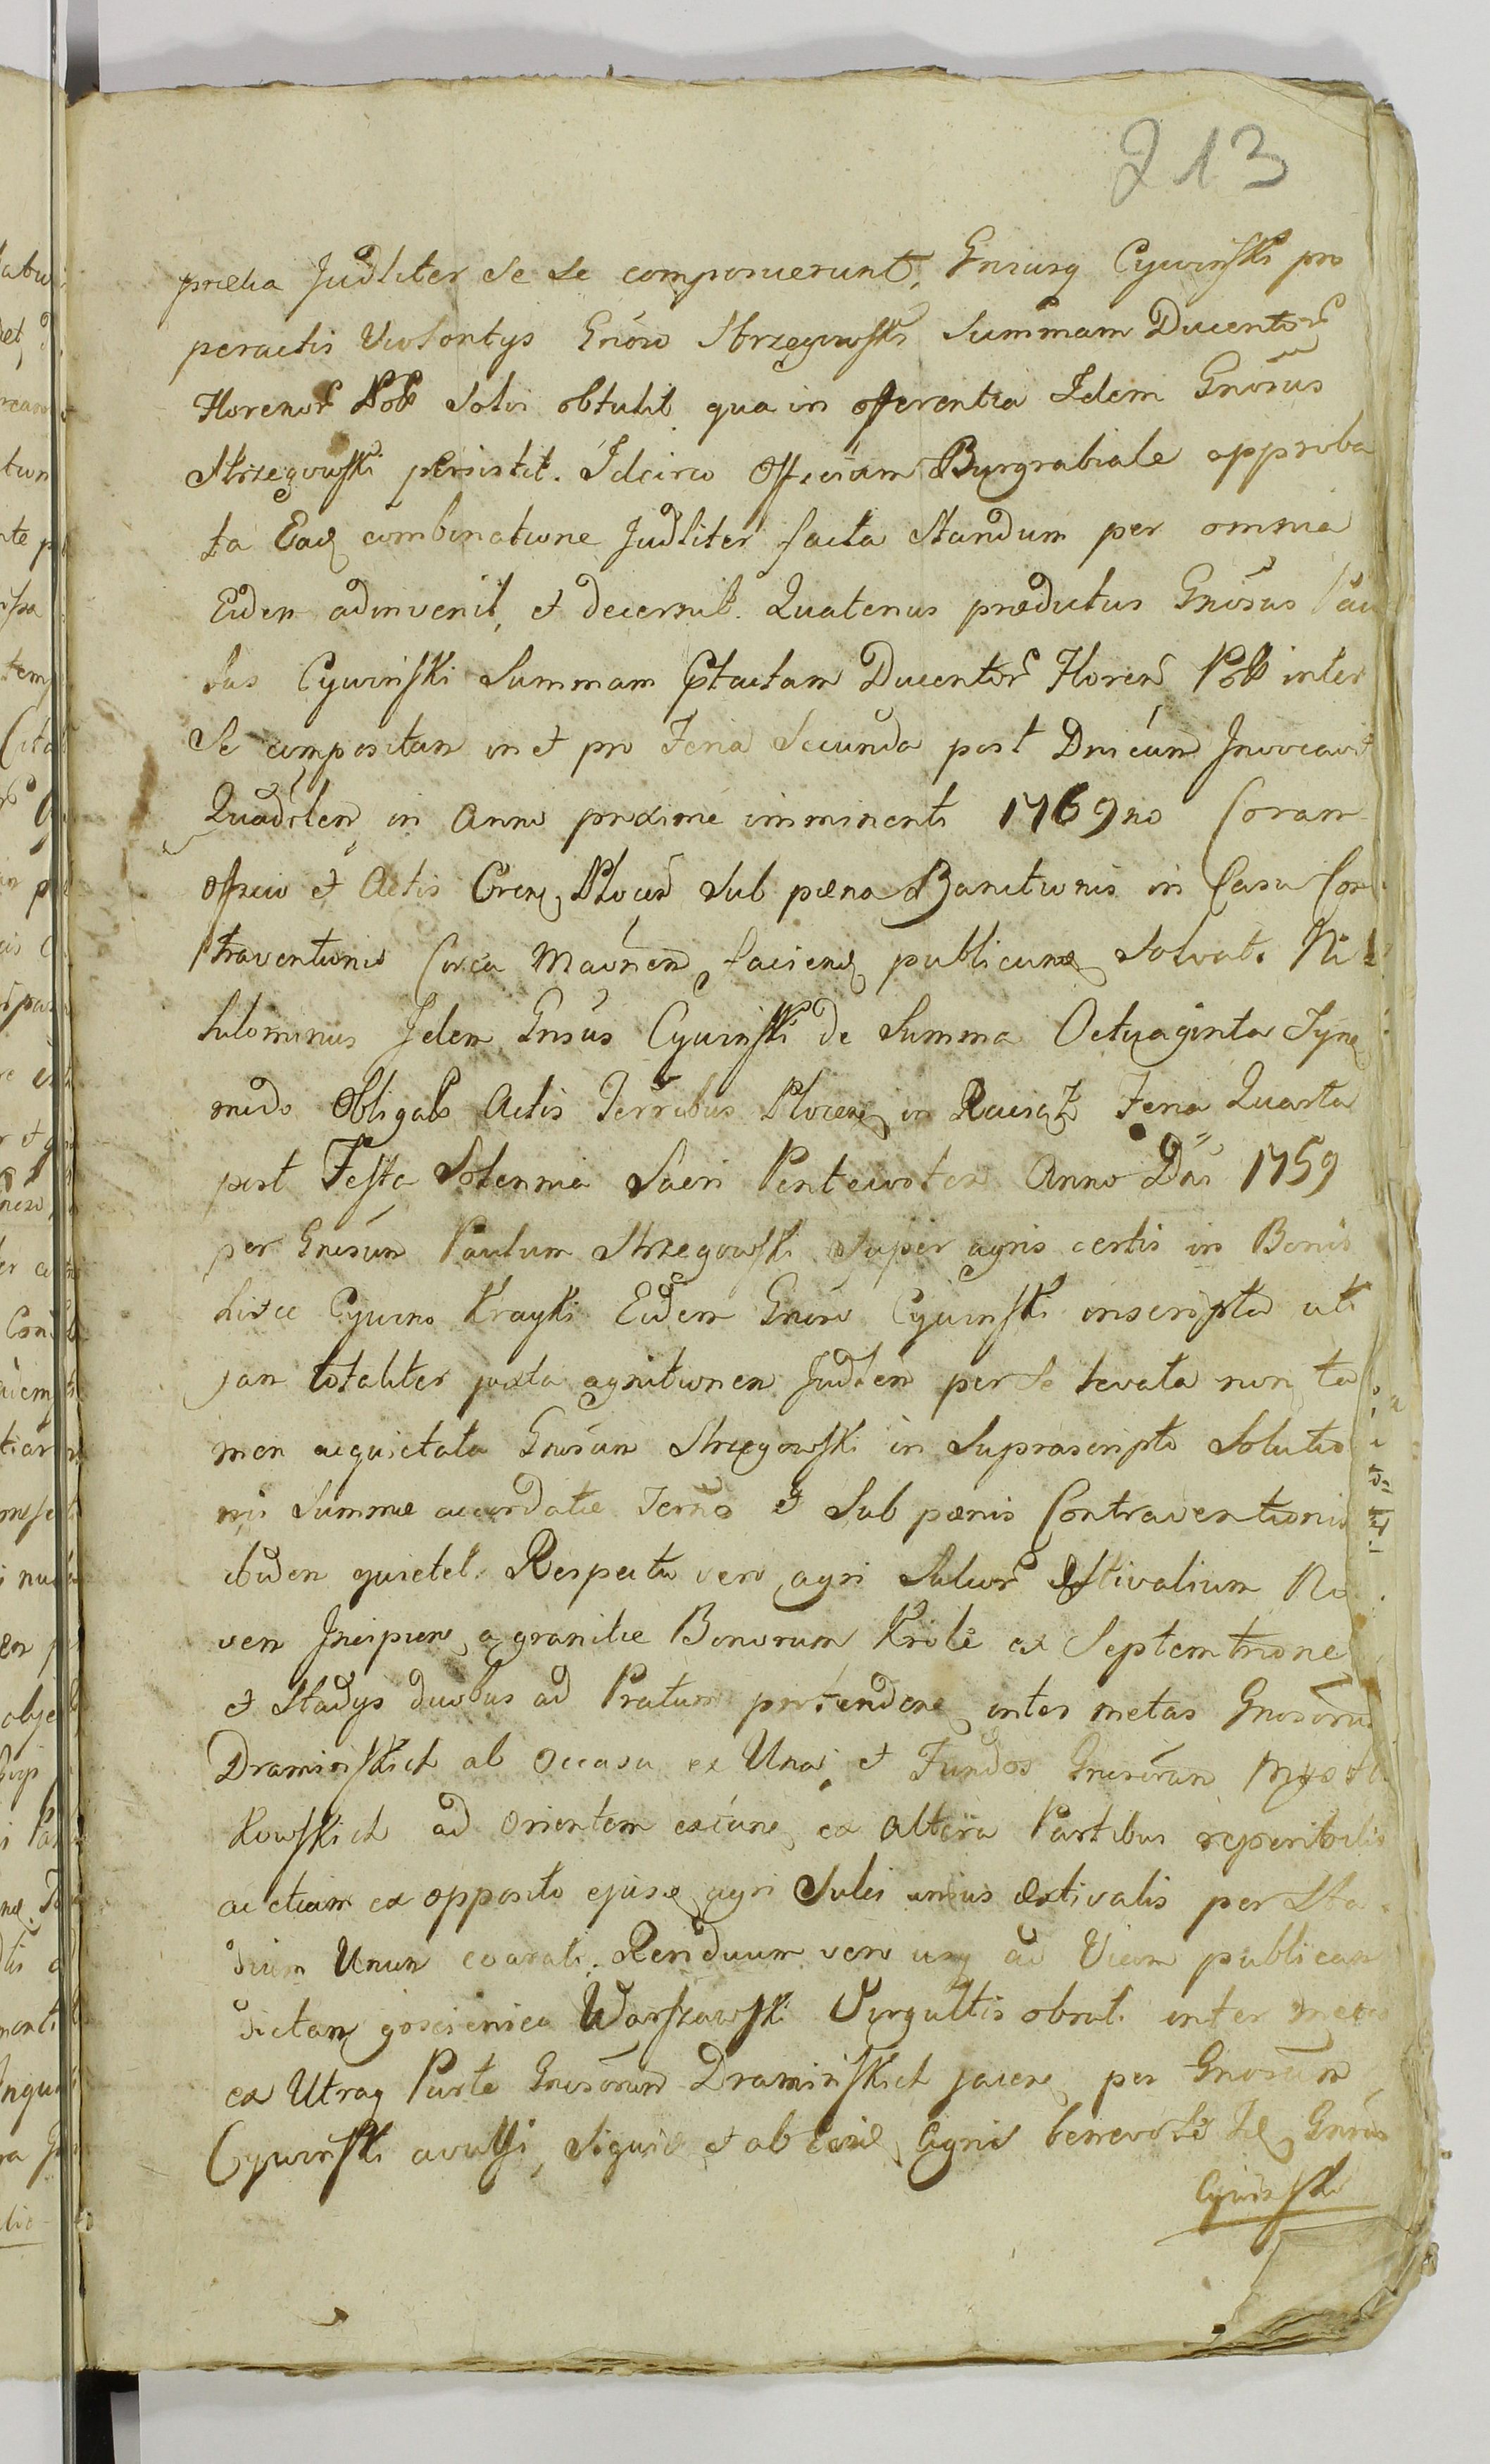 213
prætia Judliter se se composuerunt, Gnsusq Cywinski pro
peractis Violentijs Gnoso Strzegowski Summam Ducentor
Florenor Pol Solvi obtulit qua in offerentia Idem Gnosus
Strzegowski persistit. Idcirco Officium Burgrabiale approba
ta Eaq combinatione Judliter facta Standum per omnia
Eidem adinvenit, et decernit. Quatenus prædictus Gnosus Pau
lus Cywinski Summam Ptactam Ducentor Floren Pol inter
Se compositam in et pro Feria Secunda post Dnicam Invocavit
Quadrlen in Anno proximé imminenti 1769no Coram
Officio et Actis Cren Plocen Sub pæna Banitionis in Casu Con
traventionis Circa faciend publicand Solvat. Ni
hilominus Idem Gnsus Cywinski de Summa Octuaginta Tynf
modo Obligato Actis Terribus Plocen in Raciąż Feria Quarta
post Festa Solennia Sacri Pentecostes Anno Dni 1759
per Gnosum Paulum Strzegowski Super agris certis in Bonis
hisce Cywino Krayki Eidem Gnoso Cywinski inscripta uti
jam totaliter juxta agnitionem Judlem per Se levata non ta
men acquietata Gnosum Strzegowski in Suprascripto Solutio
nis Summæ accordatæ Termo et Sub pænis Contraventionis
ibidem quietet. Respectu vero agri Sulcor Æstivalium No
vem Incipien a granitie Bonorum Krole ex Septemtrione
et Stadys duobus ad Pratum protendend inter metas Gnosorum
Dramińskich ab Occasu ex Una, et Fundos Gnosorum
kowskich ad Orientem ex altera Partibus reperibilis
ac etiam ex opposito ejusd agri Sulci unius Æstivalis per Sta
dium Unum exarati. Residuum vero usq ad Viam publicam
dictam goscieniec Warszawski Virgultis obruti inter metas
ex Utraq Parte Gnosorum Dramińskich jacen per Gnosum
Cywinski avulsi, Siquid et ab Agris benevole Id Gnsus
Cywinski